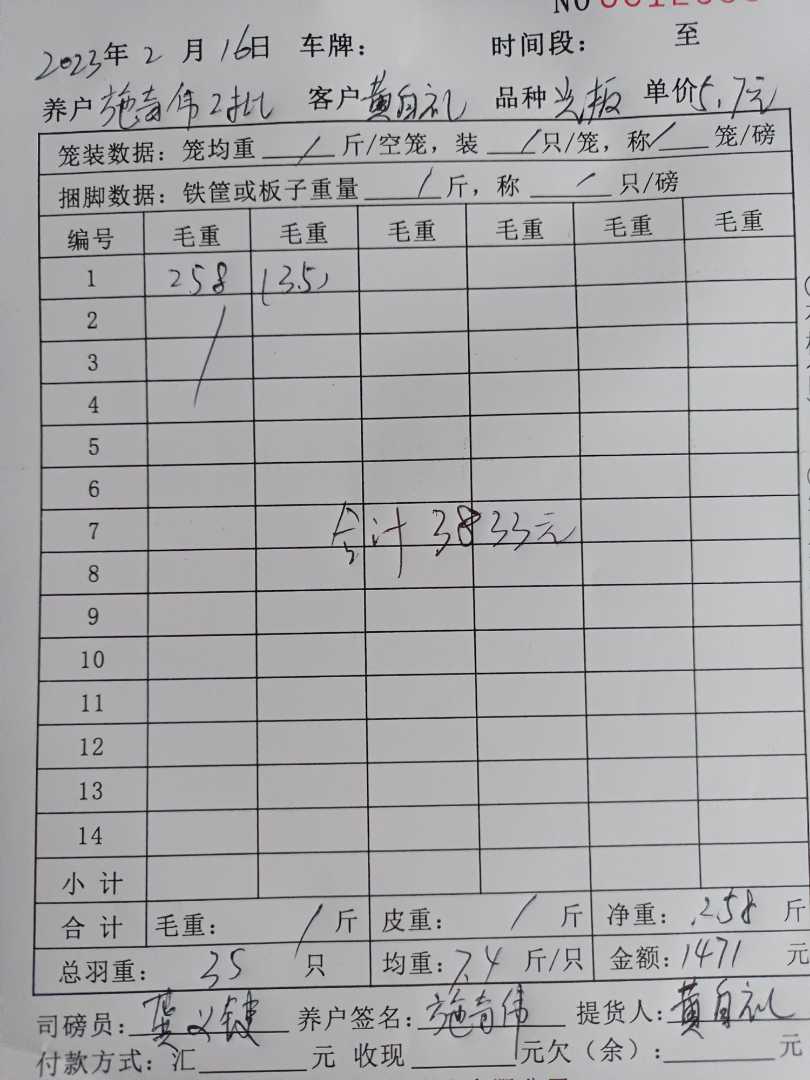 2023年2月16日 车牌: 时间段: 至
养户施奇伟2批 客户黄自礼 品种光板 单价5.7元
笼装数据: 笼均重 / 斤/空笼, 装 / 只/笼, 称 / 笼/磅
捆脚数据: 铁筐或板子重量 / 斤, 称 / 只/磅
编号 毛重 毛重 毛重 毛重 毛重 毛重
1 258 (35)
2
3
4
5
6
7 合计3833元
8
9
10
11
12
13
14
小 计
合 计 毛重: / 斤 皮重: / 斤 净重: 258 斤
总羽重: 35 只 均重: 7.4 斤/只 金额: 1471 元
司磅员: 龚义键 养户签名: 施奇伟 提货人: 黄自礼
付款方式: 汇 元 收现 元欠(余): 元